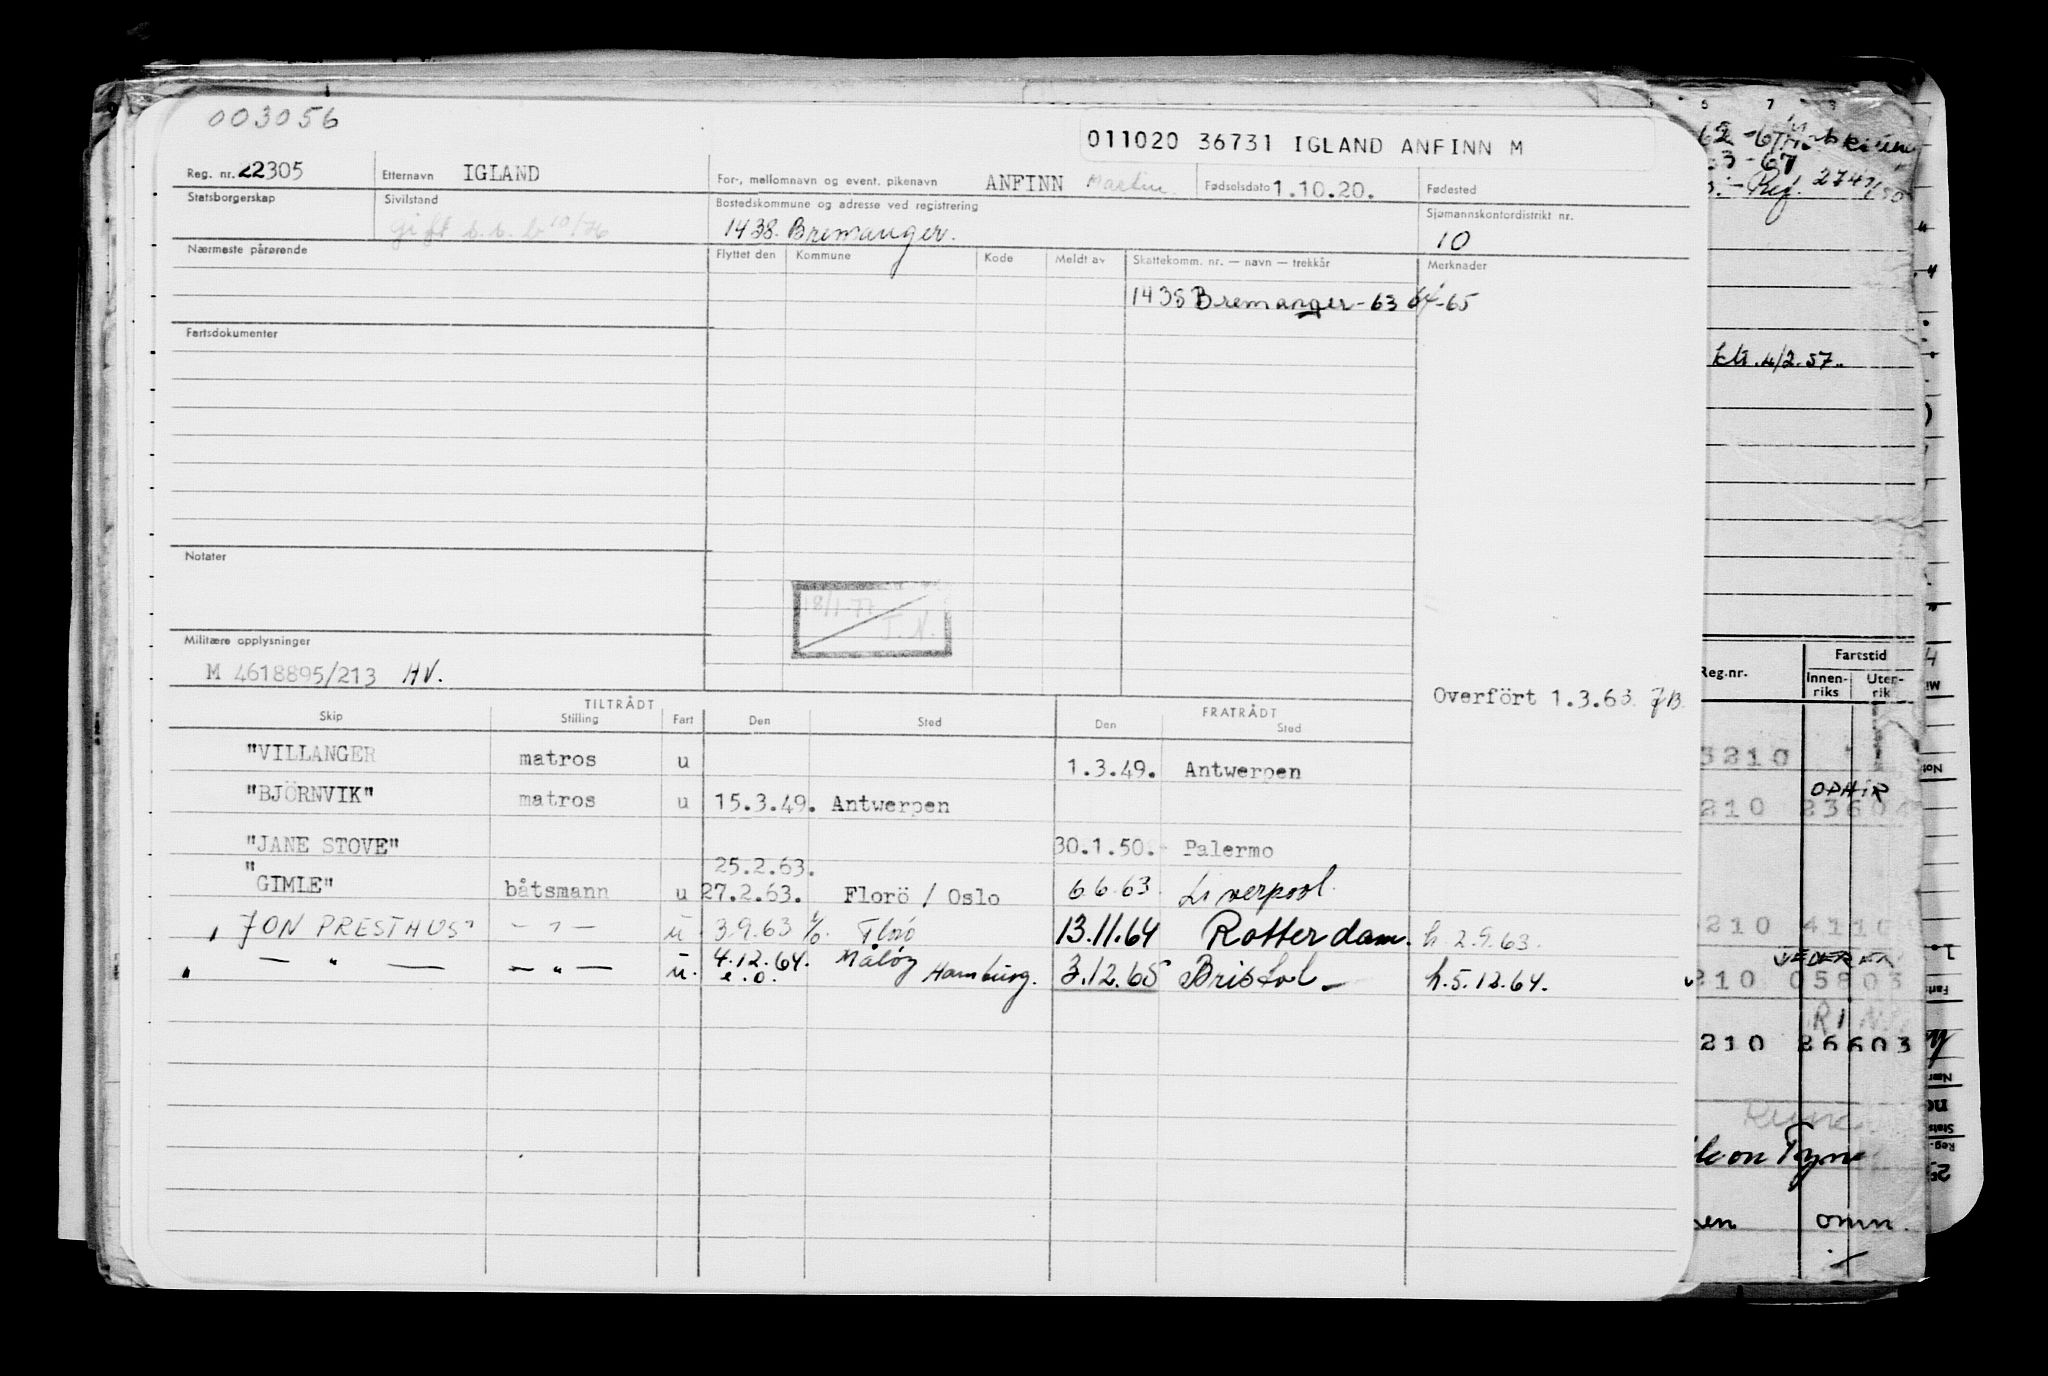 003056
011020 36731 IGLAND ANFINN M
Reg. nr. 22305 Etternavn IGLAND For-, mellomnavn og event. pikenavn ANFINN Martin Fødselsdato 1.10.20. Fødested
Statsborgerskap Sivilstand gift b.s.b 10/76 Bostedskommune og adresse ved registrering 1438 Bremanger. Sjømannskontordistrikt nr. 10
Nærmeste pårørende Flyttet den Kommune Kode Meldt av Skattekomm. nr. — navn — trekkår Merknader
1438 Bremanger - 63 64 - 65
Fartsdokumenter
Notater
18/1-77 T.N.
Militære opplysninger
M 4618895/213 HV.
Overfört 1.3.63.
TILTRÅDT FRATRÅDT
Skip Stilling Fart Den Sted Den Sted
"VILLANGER matros u 1.3.49. Antwerpen
"BJÖRNVIK" matros u 15.3.49. Antwerpen
"JANE STOVE" 30.1.50. Palermo
" 25.2.63.
GIMLE" båtsmann u 27.2.63. Florö / Oslo 6.6.63. Liverpool.
" JON PRESTHUS" — " — u. 3.9.63 Florö 13.11.64 Rotterdam. h. 2.9.63.
" — " — — " — u. 4.12.64. Måløy
e.o. Hamburg. 3.12.65 Bristol - h. 5.12.64.
6 7 8
- 67
Ref. 2747/55
4/2.57.
Reg.nr. Fartstid
Innen-riks Uten-rik
3210
OPHIR
210 23604
210
210 05803
210 26603
omn.